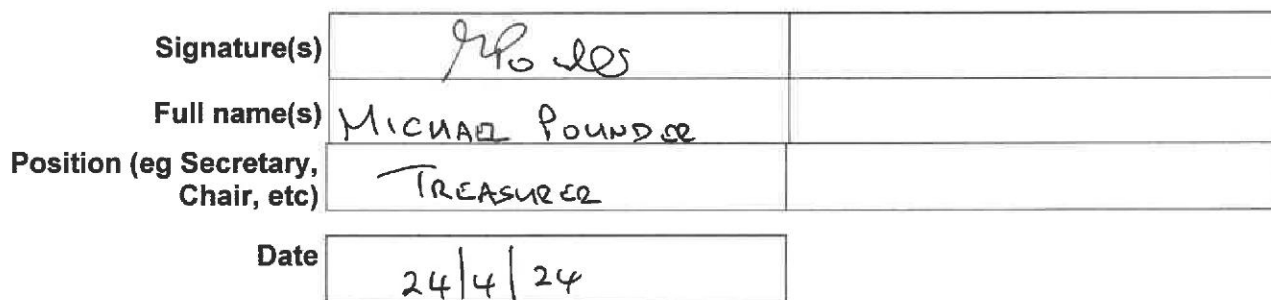 Signature(s)
Full name(s) MICHAEL POUNDER
Position (eg Secretary,
Chair, etc) TREASURER
Date 24/4/24